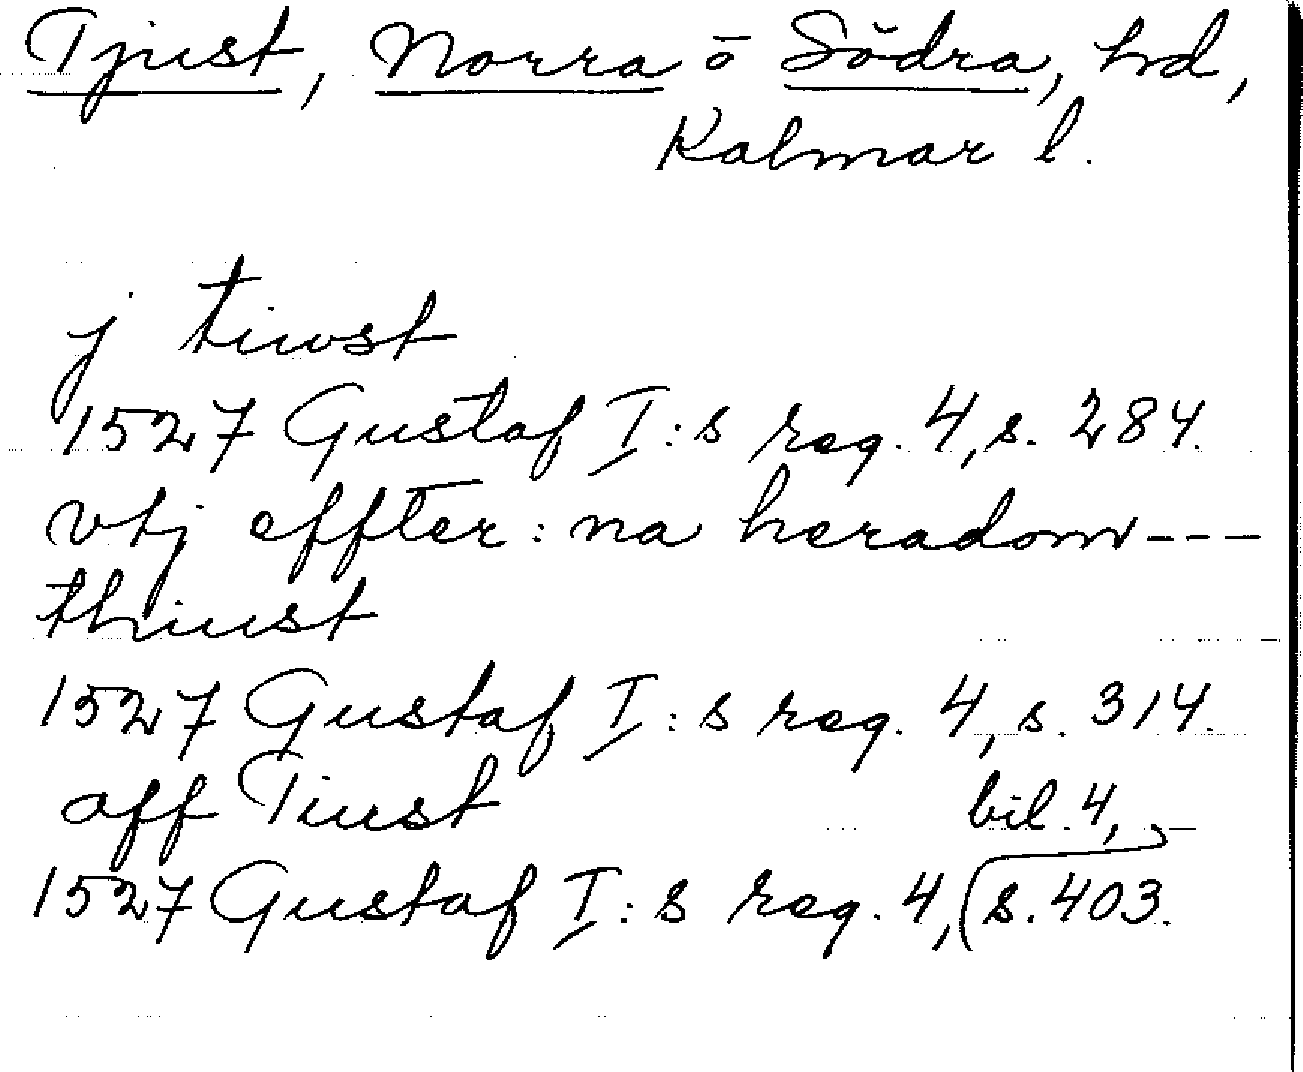 Tjust, Norra o Södra, hd,
Kalmar l.
j tiwst
1527 Gustaf I:s reg. 4, s. 284.
vtj effter: na heradom---
thiust
1527 Gustaf I:s reg. 4, s. 314.
aff Tiust
bil. 4,
1527 Gustaf I:s reg. 4, s. 403.